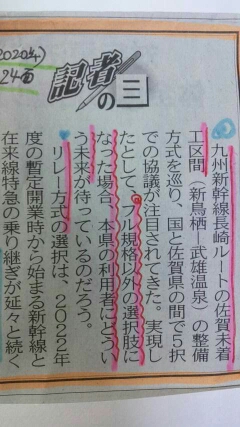 2020年)
24面
記者
の三
九州新幹線長崎ルートの佐賀未着
工区間（新鳥栖―武雄温泉）の整備
方式を巡り、国と佐賀県の間で5択
での協議が注目されてきた。実現し
たとして、フル規格以外の選択肢に
なった場合、本県の利用者にどうい
う未来が待っているのだろう。
リレー方式の選択は、2022年
度の暫定開業時から始まる新幹線と
在来線特急の乗り継ぎが延々と続く